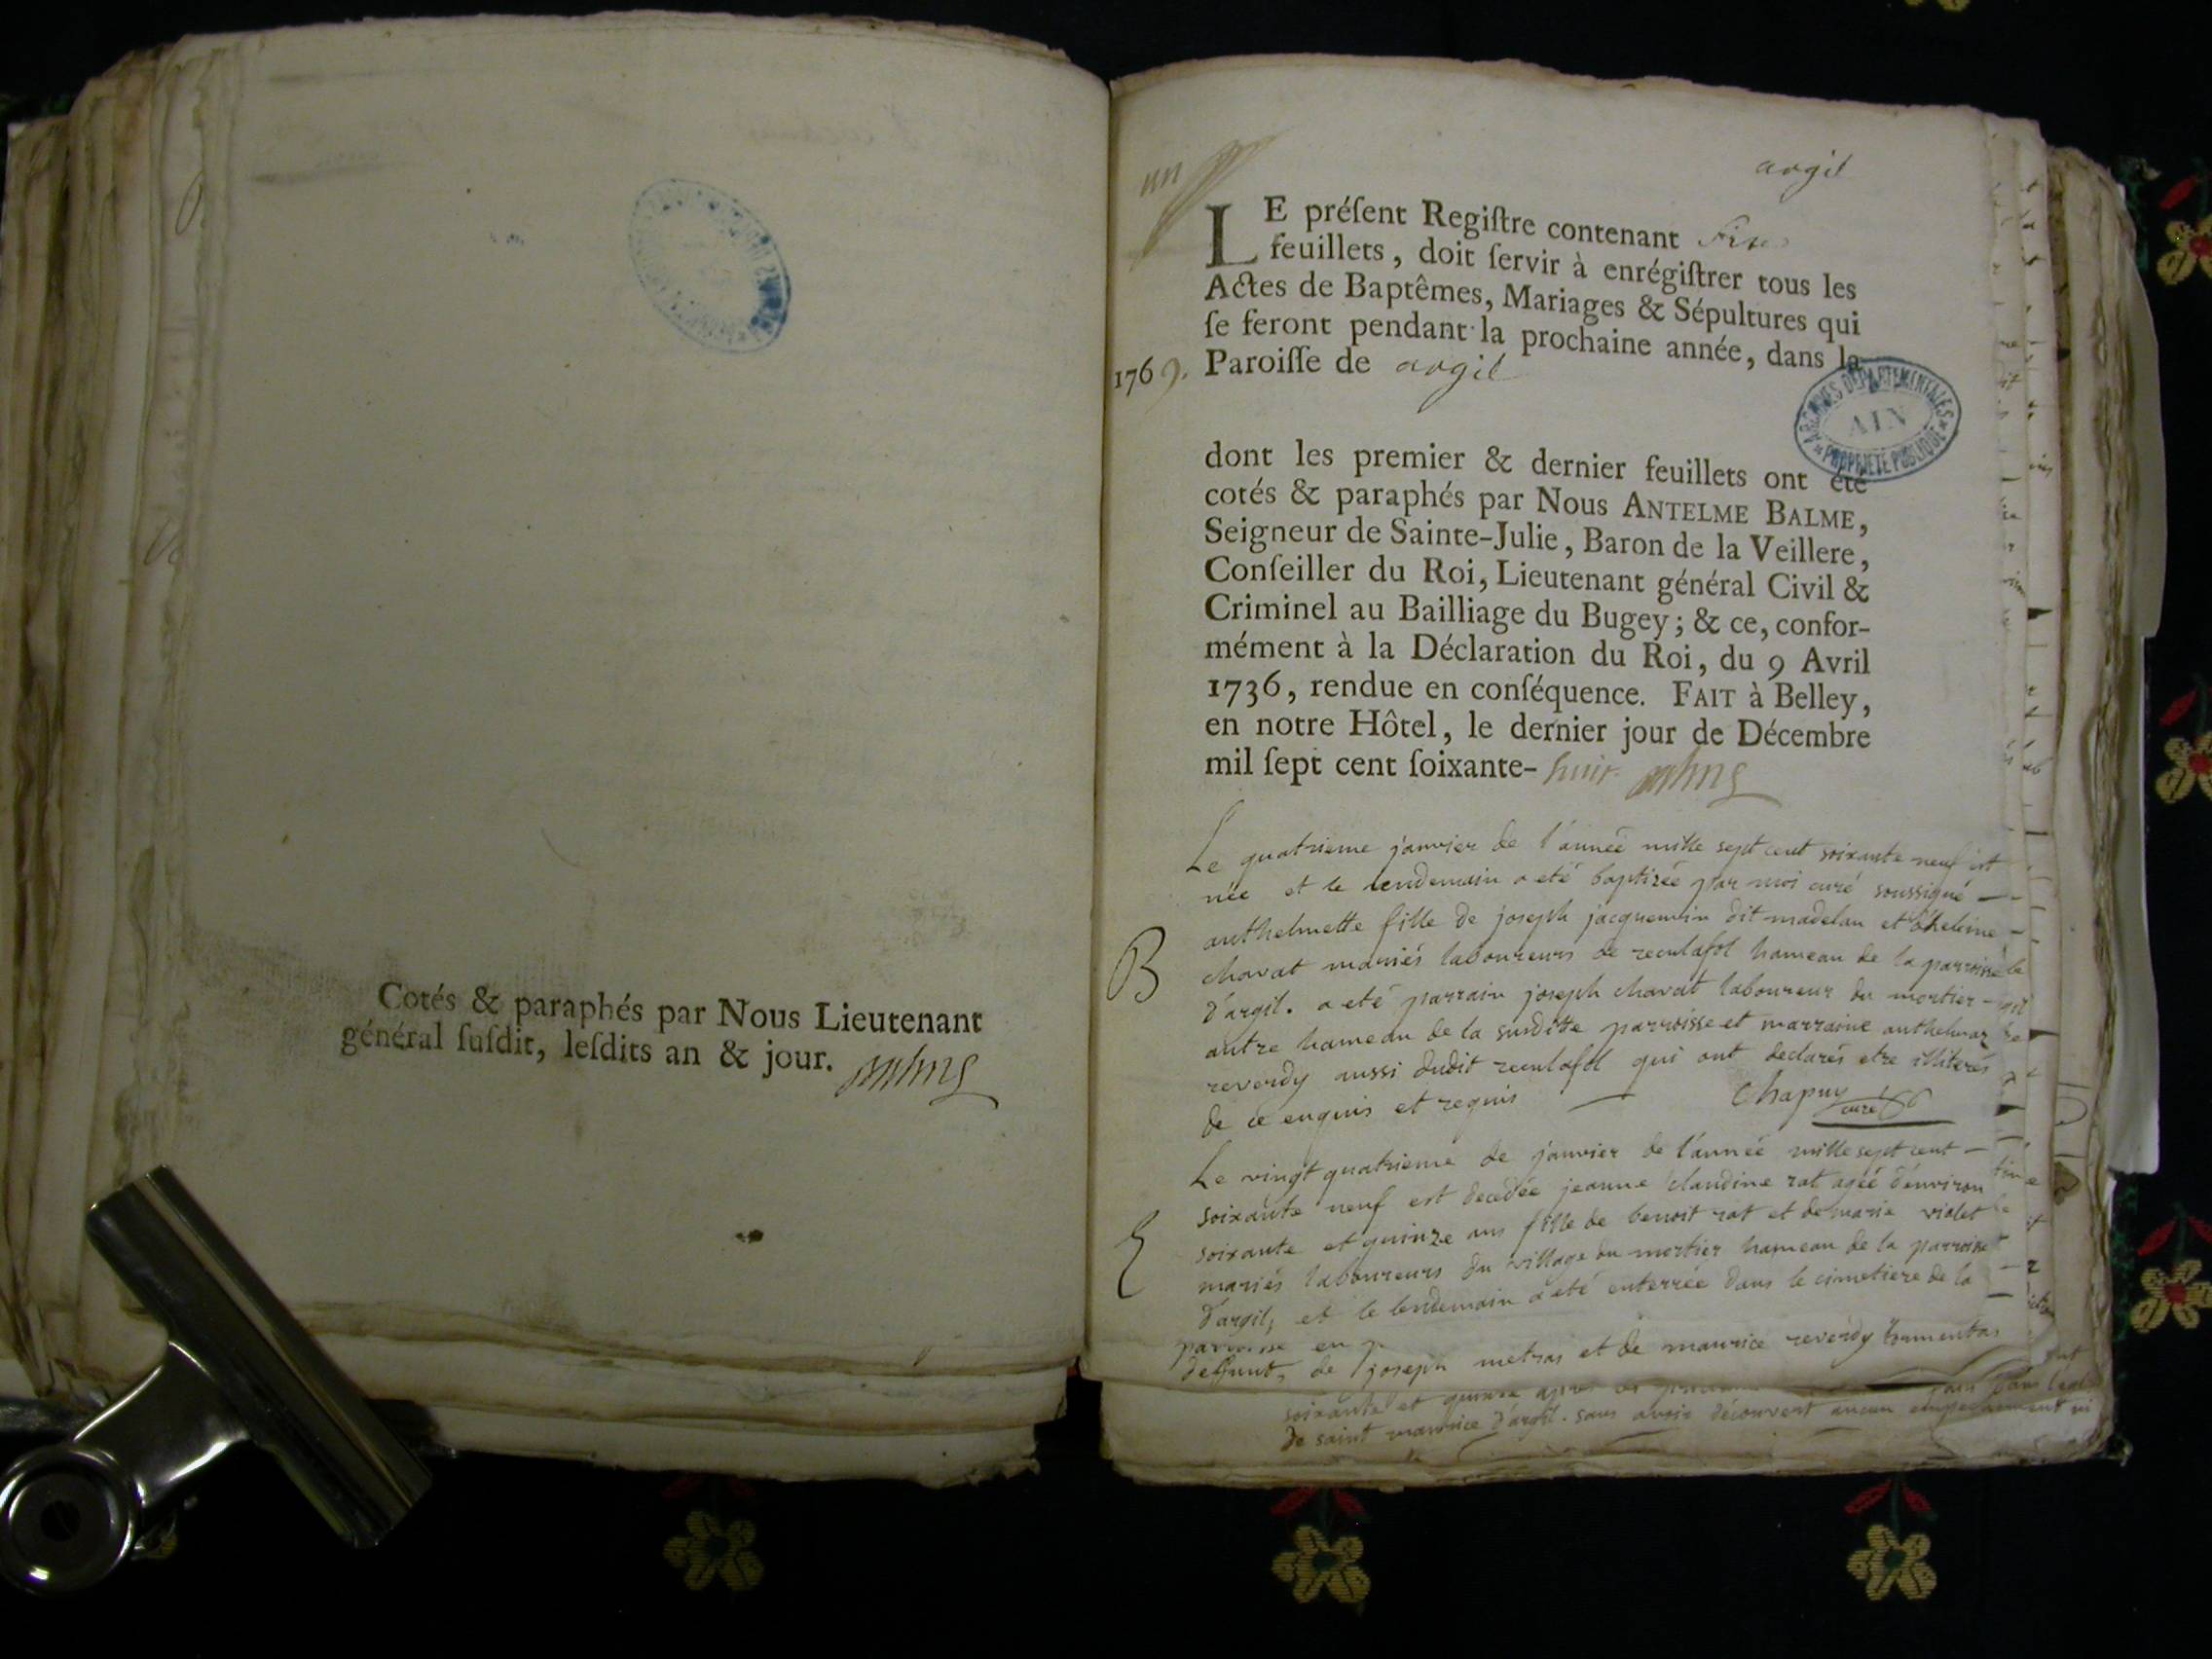 Cotés & paraphés par Nous Lieutenant
général ſuſdit, leſdits an & jour.
un
argil
LE préſent Regiſtre contenant Six
feuillets, doit ſervir à enrégiſtrer tous les
Actes de Baptêmes, Mariages & Sépultures qui
ſe feront pendant la prochaine année, dans la
1769. Paroiſſe de argil
ARCHIVES DEPARTEMENTALES
AIN
PROPRIETE PUBLIQUE
dont les premier & dernier feuillets ont été
cotés & paraphés par Nous ANTELME BALME,
Seigneur de Sainte-Julie, Baron de la Veillere,
Conſeiller du Roi, Lieutenant général Civil &
Criminel au Bailliage du Bugey; & ce, confor-
mément à la Déclaration du Roi, du 9 Avril
1736, rendue en conſéquence. FAIT à Belley,
en notre Hôtel, le dernier jour de Décembre
mil ſept cent ſoixante-huit
Le quatrieme janvier de l'année mille sept cent soixante neuf est
née et le lendemain a eté baptizée par moi curé soussigné
anthelmette fille de joseph jacquemin dit madelan et
B chavat mariés laboureurs de reculafol hameau de la parroisse
d'argil. a eté parrain joseph chavat laboureur du mortier
autre hameau de la susditte parroisse et marraine
reverdy aussi dudit reculafol qui ont declarés etre illiterés
de ce enquis et requis Chapuy curé
Le vingt quatrieme de janvier de l'année mille sept cent
soixante neuf est decedée jeanne claudine rat agée d'environ
soixante et quinze ans fille de benoit rat et de marie violet
mariés laboureurs du village du mortier hameau de la parroisse
d'argil, et le lendemain a eté enterrée dans le cimetiere de la
parroisse en
de joseph metras et de maurice reverdy
soixante et quinze
de saint maurice d'argil. sans avoir découvert aucun empechement ni